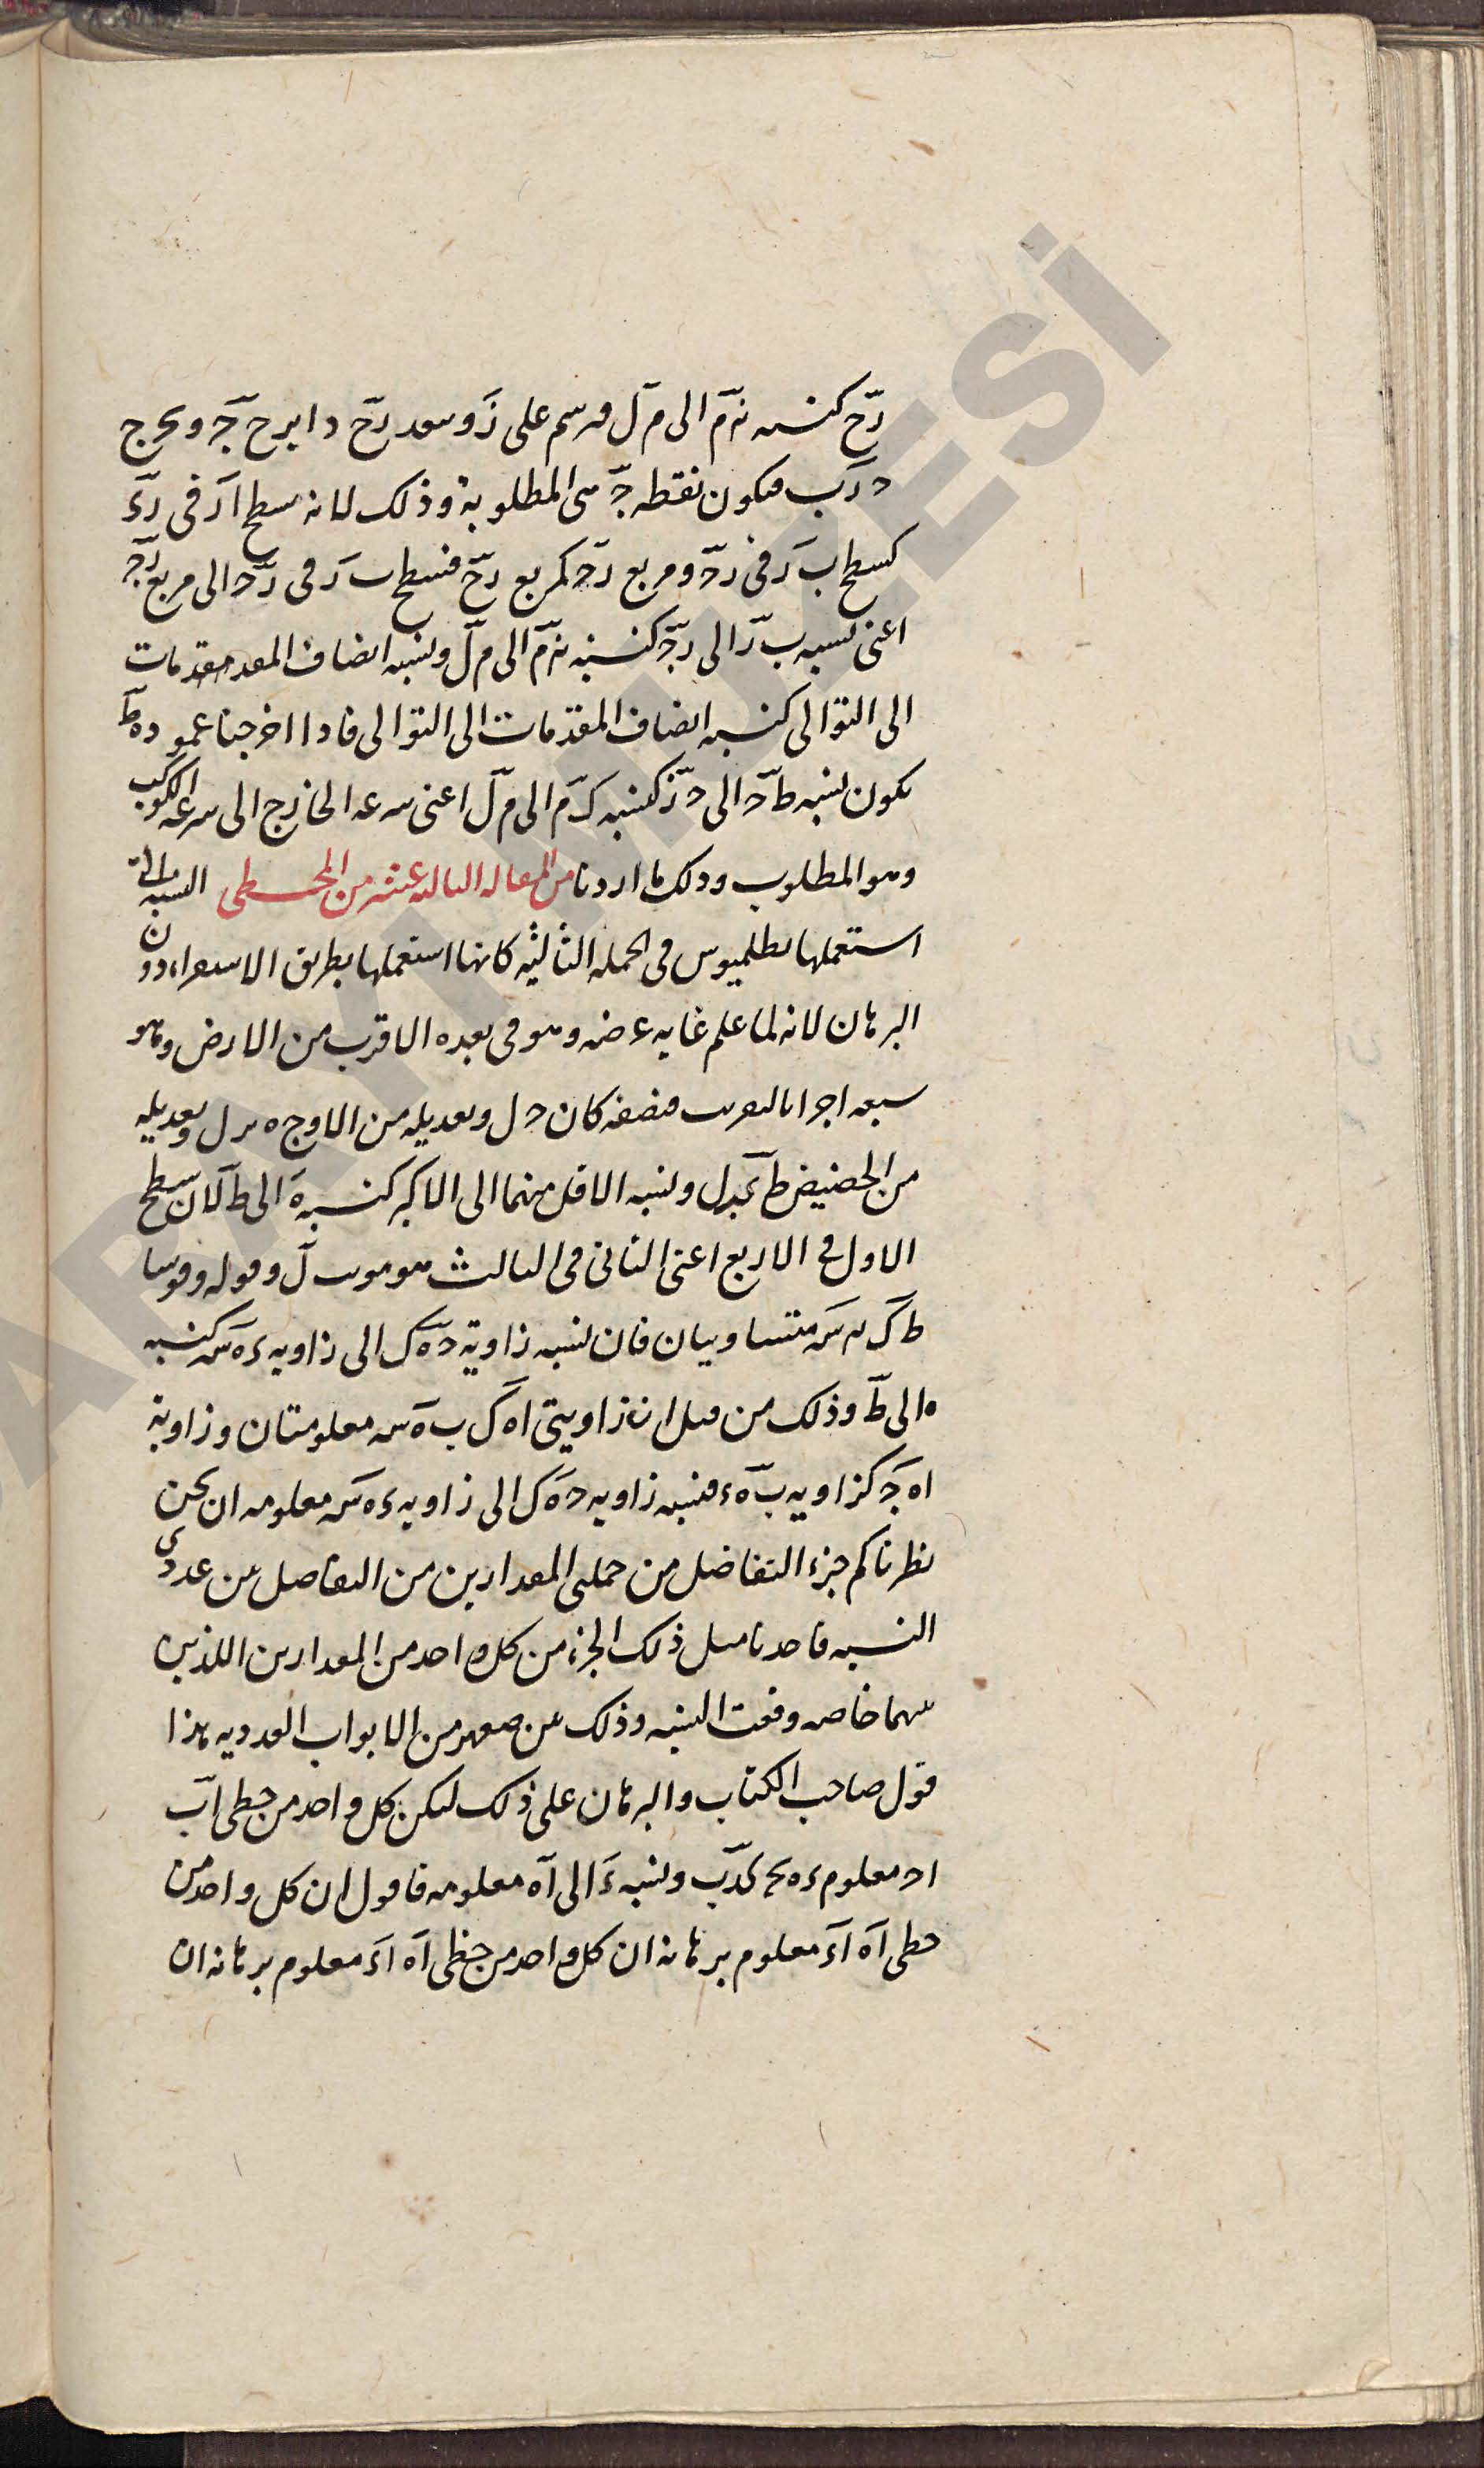 رح كنسبه نرم الى م ل ونرسم على ز وببعد رح دايره ح ج ونخرج
د ر ب فيكون نقطه ج هى المطلوبة وذلك لانه سطح ا ر فى ر ء
كسطح ب ر فى ر د ومربع ر ج كمربع ر ح فسطح ب ر فى ر د الى مربع ر ج
اعنى نسبه ب ر الى ر ج كنسبه نرم الى م ل ونسبه انصاف المعد مقدمات
الى التوالى كنسبه انصاف المقدمات الى التوالى فاذا اخرجنا عمود ه ط
يكون نسبه ط د الى د ز كنسبه ك م الى م ل اعنى سرعه الخارج الى سرعه الكوكب
وهو المطلوب وذلك ما اردنا من المقاله الثالثه عشر من المجسطى النسبه التى
استعملها بطلميوس فى الجمله الثالثه كانها استعملها بطريق الاستقراء دون
البرهان لانه لما علم غايه عرضه وهو فى بعده الاقرب من الارض وهو
سبعه اجزا بالتقريب فنصفه كان د ل وتعديله من الاوج ه ل وتعديله
من الحضيض ط ونسبه الاقل منهما الى الاكبر كنسبه ه الى ط لان سطح
الاول فى الاربع اعنى الثانى فى الثالث هو وقوله وقوسا
ط ك متساويان فان نسبه زاوية د ه ك الى زاويه ء ه س كنسبه
ه الى ط وذلك من قبل ان زاويتى ا ه ك ب ه س معلومتان وزاوية
ا ه ج كزاويه ب ه ء فنسبه زاويه د ه ك الى زاويه ء ه س معلومه ان نحن
نظرنا كم جزء التفاضل من جملتى المقدارين من التفاضل من عددى
النسبه فاخذنا مثل ذلك الجزء من كل واحد من المقدارين اللذين
بينهما خاصه وقعت النسبه وذلك من الابواب العدديه هذا
قول صاحب الكتاب والبرهان على ذلك ليكن كل واحد من خطى ا ب
ا د معلوم ونسبه ء الى ا ه معلومه فاقول ان كل واحد من
خطى ا ه ا ء معلوم برهانه ان كل واحد من خطى ا ه ا ء معلوم برهانه ان